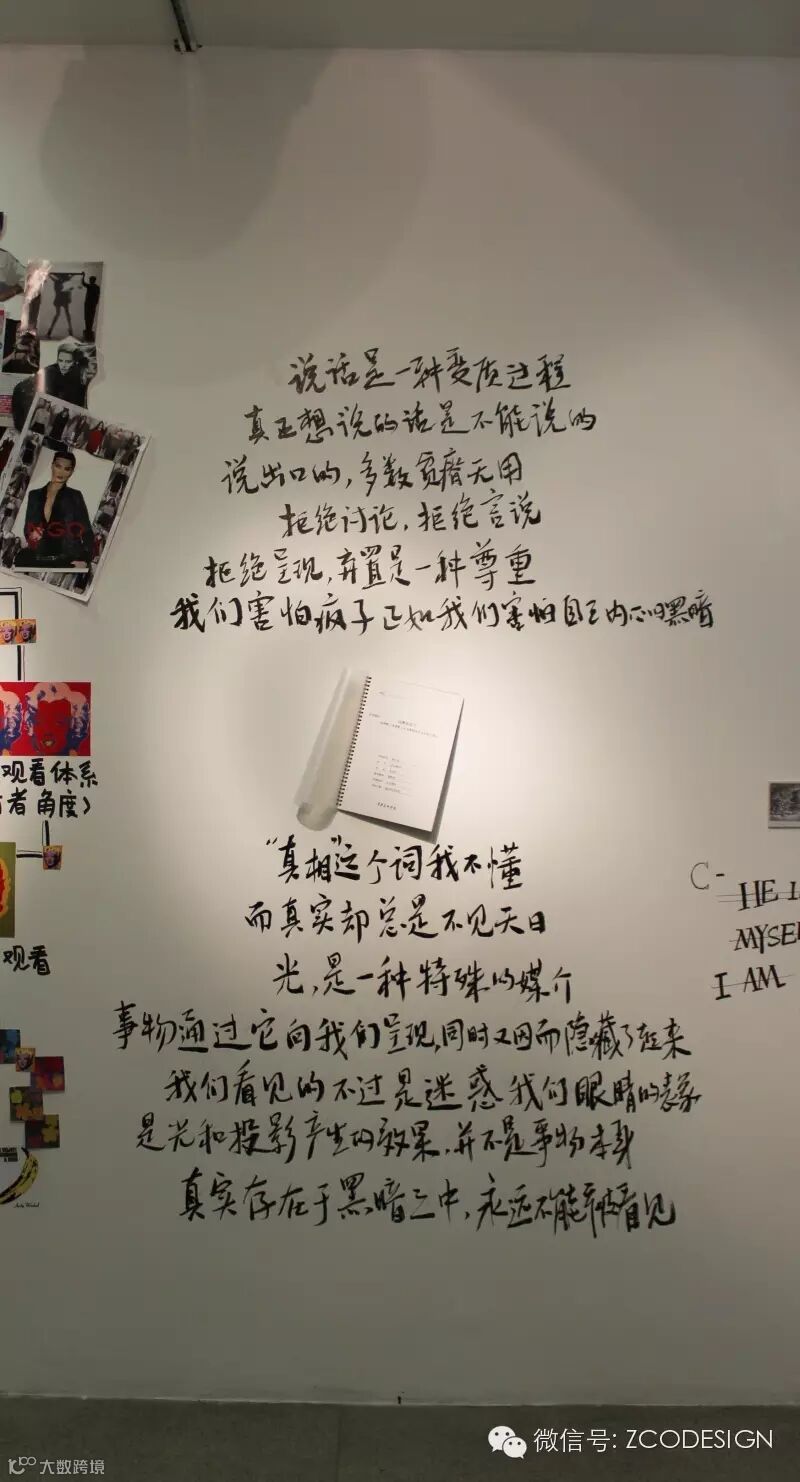 说话是一种变质过程
真正想说的话是不能说的
说出口的,多数喑无用
拒绝讨论,拒绝言说
拒绝呈现,弃置是一种尊重
我们害怕疯子正如我们害怕自己内心的黑暗
NGO
观看体系
者角度)
观看
"真相"这个词我不懂
而真实却总是不见天日
光,是一种特殊的媒介
事物通过它向我们呈现,同时又因而隐藏了起来
我们看见的不过是迷惑我们眼睛的表象
是光和投影产生的效果,并不是事物本身
真实存在于黑暗之中,永远不能被看见
C-
HE
MYSE
I AM
微信号: ZCODESIGN
大数跨境